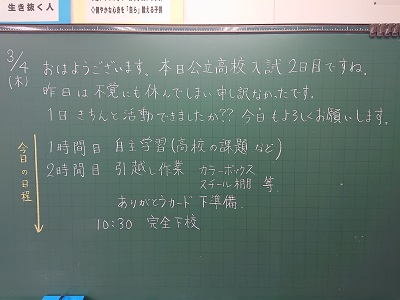 生き抜く人
◇健やかな心を「自ら」鍛える子供
3/4
(木)
おはようございます。本日公立高校入試2日目ですね。
昨日は不覚にも休んでしまい申し訳なかったです。
1日きちんと活動できましたか?? 今日もよろしくお願いします。
今日の日程
1時間目 自主学習(高校の課題など)
2時間目 引越し作業 カラーボックス
スチール棚 等
ありがとうカード 下準備
10:30 完全下校